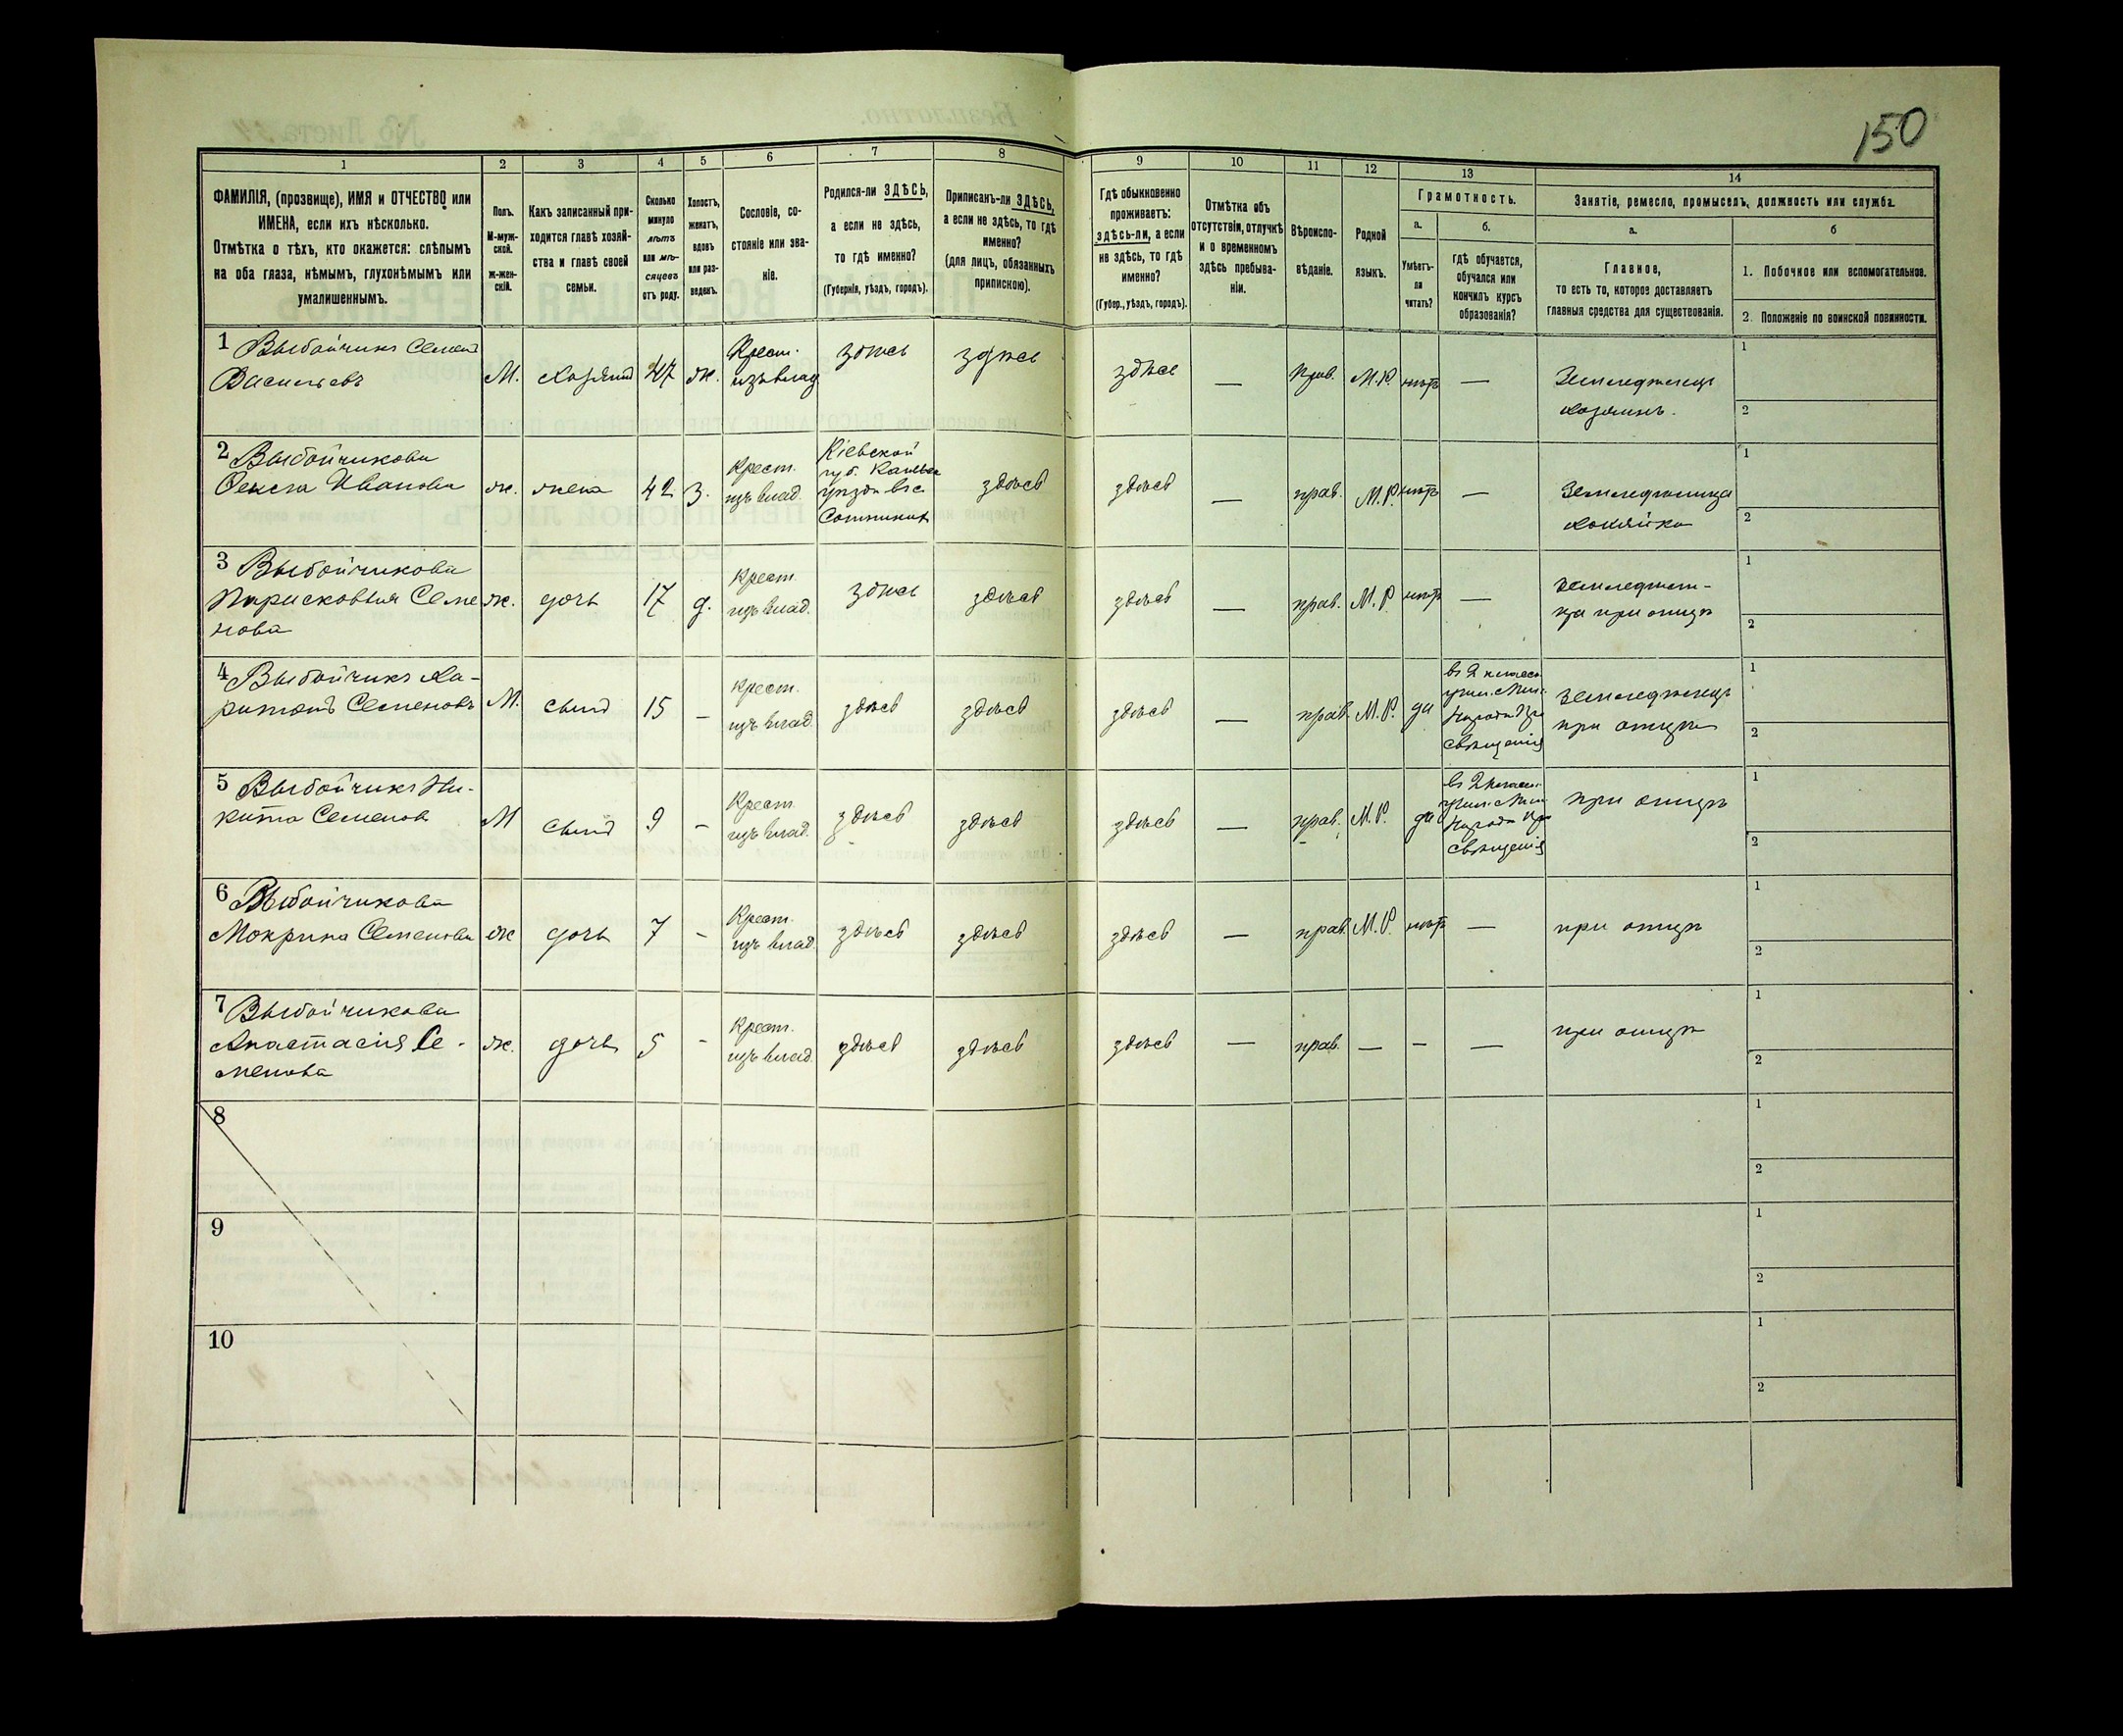 150
1
2
3
4
5
6
7
8
9
10
11
12
13
14
ФАМИЛІЯ, (прозвище), ИМЯ и ОТЧЕСТВО или
ИМЕНА, если ихъ нѣсколько.
Отмѣтка о тѣхъ, кто окажется: слѣпымъ
на оба глаза, нѣмымъ, глухонѣмымъ или
умалишеннымъ.
Полъ.
М-муж-
ской.
ж-жен-
скій.
Какъ записанный при-
ходится главѣ хозяй-
ства и главѣ своей
семьи.
Сколько
минуло
лѣтъ
или мѣ-
сяцевъ
отъ роду.
Холостъ,
женатъ,
вдовъ
или раз-
веденъ.
Сословіе, со-
стояніе или зва-
ніе.
Родился-ли ЗДѢСЬ,
а если не здѣсь,
то гдѣ именно?
(Губернія, уѣздъ, городъ).
Приписанъ-ли ЗДѢСЬ,
а если не здѣсь, то гдѣ
именно?
(для лицъ, обязанныхъ
припискою).
Гдѣ обыкновенно
проживаетъ:
здѣсь-ли, а если
не здѣсь, то гдѣ
именно?
(Губер., уѣздъ, городъ).
Отмѣтка объ
отсутствіи, отлучкѣ
и о временномъ
здѣсь пребыва-
ніи.
Вѣроиспо-
вѣданіе.
Родной
языкъ.
Грамотность.
а.
Умѣетъ-
ли
читать?
б.
гдѣ обучается,
обучался или
кончилъ курсъ
образованія?
Занятіе, ремесло, промыселъ, должность или служба.
а.
Главное,
то есть то, которое доставляетъ
главныя средства для существованія.
б
1. Побочное или вспомогательное.
2. Положеніе по воинской повинности.
1 Выбойчикъ Семенъ
Васильевъ
М.
хозяинъ
47
ж.
Крест.
изъ влад
здѣсь
здѣсь
здѣсь
—
Прав.
М.Р.
нѣтъ
—
Земледѣлецъ
хозяинъ.
1
2
2 Выбойчикова
Оекла Иванова
ж.
жена
42
з.
Крест.
изъ влад.
Кіевской
губ.
здѣсь
здѣсь
—
прав.
М.Р.
нѣтъ
—
Земледѣлица
хозяйка
1
2
3 Выбойчикова
Парасковья Семе
нова
ж.
дочь
17
д.
Крест.
изъ влад.
здѣсь
здѣсь
здѣсь
—
прав.
М.Р.
нѣтъ
—
Земледѣли-
ца при отцѣ
1
2
4 Выбойчикъ Ха-
ритонъ Семеновъ
М.
сынъ
15
—
Крест.
изъ влад.
здѣсь
здѣсь
здѣсь
—
прав.
М.Р.
да
въ 2 класс.
учил. Мин.
Народн. Про
свѣщенія
Земледѣлецъ
при отцѣ
1
2
5 Выбойчикъ Ни-
кита Семенов
М
сынъ
9
—
Крест.
изъ влад.
здѣсь
здѣсь
здѣсь
—
прав.
М.Р.
да
въ 2 класс.
учил. Мин.
Народн. Про
свѣщенія
при отцѣ
1
2
6 Выбойчикова
Мокрина Семенова
ж
дочь
7
—
Крест.
изъ влад.
здѣсь
здѣсь
здѣсь
—
прав.
М.Р.
нѣтъ
—
при отцѣ
1
2
7 Выбойчикова
Анастасія Се-
менова
ж.
дочь
5
-
Крест.
изъ влад.
здѣсь
здѣсь
здѣсь
—
прав.
—
—
—
при отцѣ
1
2
8
1
2
9
1
2
10
1
2